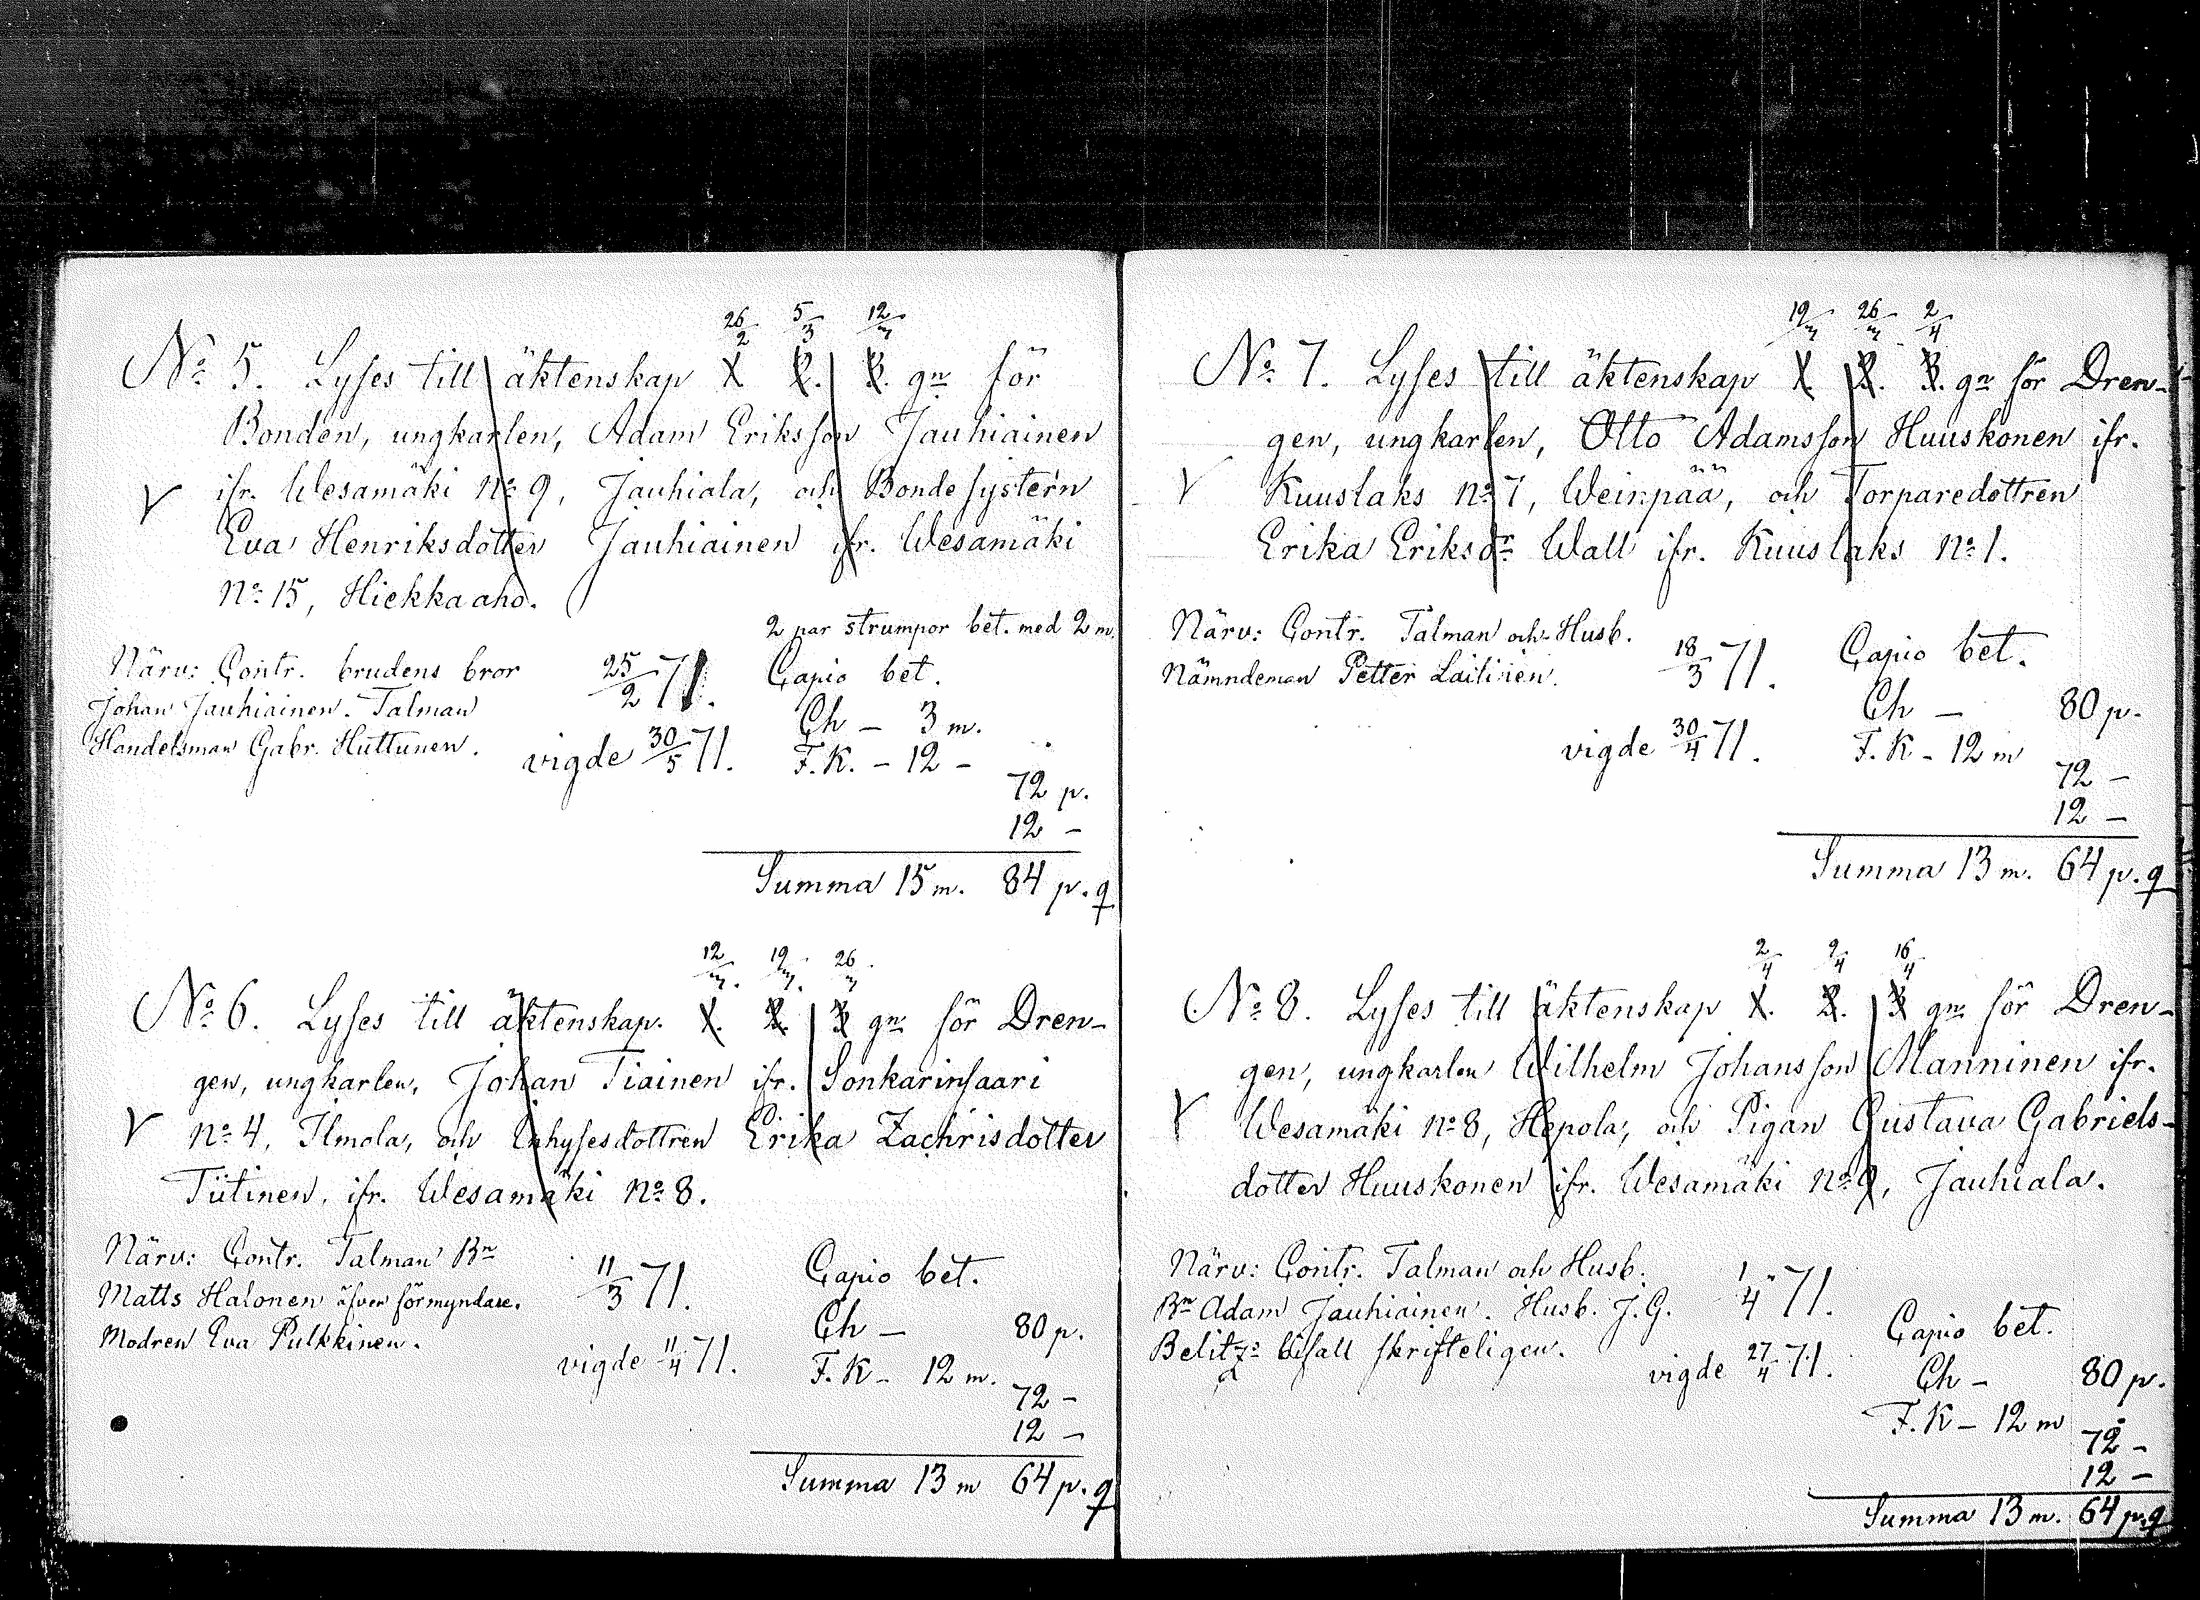 26/2 5/3 12/m
No 5. Lyses till äktenskap 1 2. 3. gr för
Bonden, ungkarlen, Adam Eriksson Jauhiainen
ifr. Wesamäki No 9, Jauhiala, och Bondesystern
Eva Henriksdotter Jauhiainen ifr. Wesamäki
No 15, Hiekkaaho.
2 par strumpor bet. med 2 m.
Närv: Contr. brudens bror 25/2 71. Capio bet.
Johan Jauhiainen. Talman Ch — 3 m.
Handelsman Gabr. Huttunen. vigde 30/5 71. F.K. — 12 —
72 p.
12 —
Summa 15 m. 84 p. q
12/m. 19/m. 26/m
No 6. Lyses till äktenskap. 1. 2. 3 gr för Dren-
gen, ungkarlen, Johan Tiainen ifr. Sonkarinsaari
No 4, Ilmola, och Inhysesdottren Erika Zachrisdotter
Tiitinen, ifr. Wesamäki No 8.
Närv: Contr. Talman Bn 11/3 71. Capio bet.
Matts Halonen äfven förmyndare. Ch — 80 p.
Modren Eva Pulkkinen. vigde 11/4 71. F.K — 12 m.
72 —
12 —
Summa 13 m 64 p. q
19/m 26/m 2/4
No 7. Lyses till äktenskap 1. 2. 3. gr för Dren-
gen, ungkarlen, Otto Adamsson Huuskonen ifr.
Kuuslaks No 7, Weinpää, och Torparedottren
Erika Eriksdr Wall ifr. Kuuslaks No 1.
Närv: Contr. Talman och Husb. 18/3 71. Capio bet.
Nämndeman Petter Laitinen. Ch — 80 p.
vigde 30/4 71. F.K — 12 m
72 —
12 —
Summa 13 m. 64 p. q
2/4 9/4 16/4
No 8. Lyses till äktenskap 1. 2. 3 gr för Dren-
gen, ungkarlen Wilhelm Johansson Manninen ifr.
Wesamäki No 8, Hepola, och Pigan Gustava Gabriels-
dotter Huuskonen ifr. Wesamäki No 9, Jauhiala.
Närv: Contr. Talman och Husb. 1/4 71.
Bn Adam Jauhiainen. Husb. J.G. Capio bet.
Belitz's bifall skrifteligen. vigde 27/4 71. Ch — 80 p.
F.K — 12 m
72 —
12 —
Summa 13 m. 64 p. q